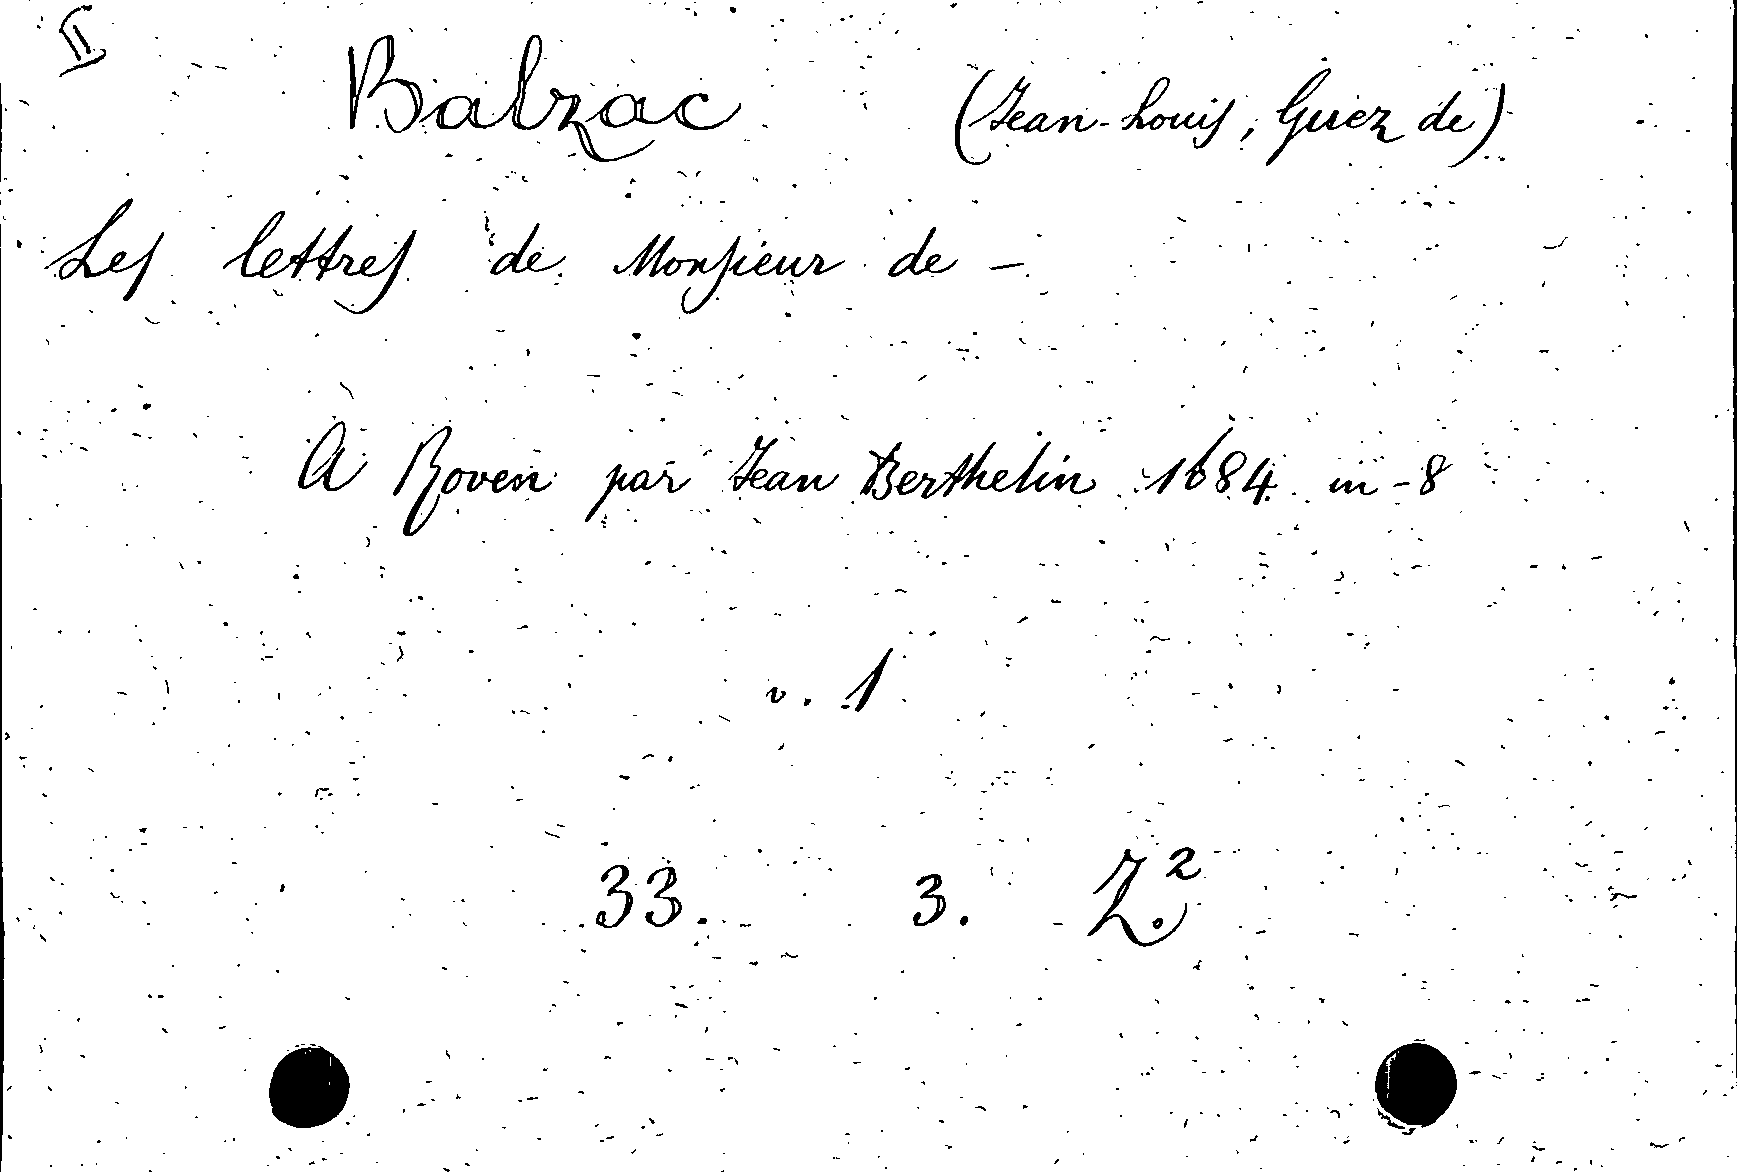 II
Balzac (Jean-Louis, Guez de)
Les lettres de Monsieur de –
A Roven par Jean Berthelin 1684 in-8
v. 1
33. 3. Z.²